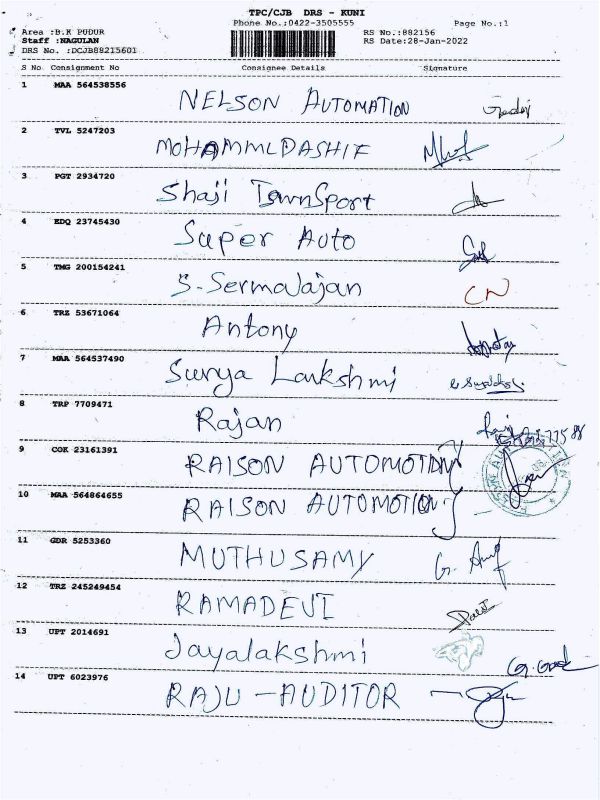 TPC/CJB DRS - KUNI
Phone No.:0422-3505555 Page No.:1
Area :B.K PUDUR RS No.:882156
Staff :NAGULAN RS Date:28-Jan-2022
DRS No. :DCJB88215601
S No Consignment No Consignee Details Signature
1 MAA 564538556 NELSON AUTOMATION
2 TVL 5247203 MOHAMMED ASHIF
3 PGT 2934720 Shaji TownSport
4 EDQ 23745430 Super Auto
5 TMG 200154241 S. Sermarajan CN
6 TRZ 53671064 Antony
7 MAA 564537490 Surya Lakshmi
8 TRP 7709471 Rajan
9 COK 23161391 RAISON AUTOMOTION
10 MAA 564864655 RAISON AUTOMOTION
11 GDR 5253360 MUTHUSAMY
12 TRZ 245249454 RAMADEVI
13 UPT 2014691 Jayalakshmi
14 UPT 6023976 RAJU - AUDITOR